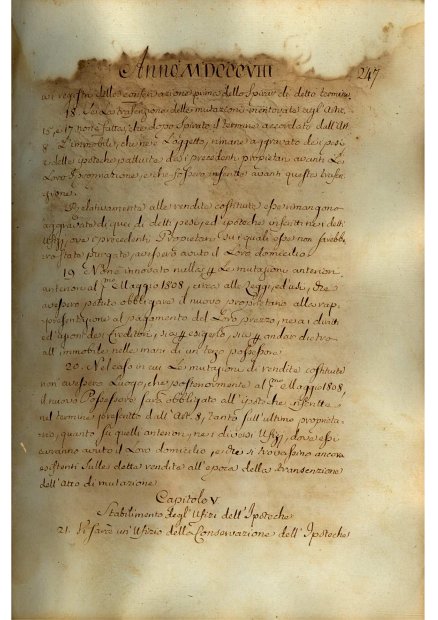 Anno MDCCCVIII 247
ai registri della conservazione prima dello spirar di detto termine
18. Se la trascrizione delle mutazioni mentovate agl'Arti:
15, e 17 non è fatta, che dopo spirato il termine accordato dall'Art.
8 l'immobile, che ne è l'oggetto, rimane aggravato dei pesi
e delle ipoteche pattuite dai precedenti proprietari avanti la
loro e che si sono inscritte avanti questa trascri-
zione.
Relativamente alle vendite costituite esse rimangono
aggravate di quei di detti pesi, ed'ipoteche inscritti nei detti
Ufizj, ove i precedenti Proprietari su i quali esse non sarebbe-
ro state purgate, avessero avuto il loro domicilio
19. Non è innovato nulla p. le mutazioni anteriori
anteriori al p.mo Maggio 1808, circa alle Leggi, ed usi, che
avessero potuto obbligare il nuovo proprietario alla rap-
presentazione al pagamento del prezzo, nè ai diritti
dei Creditori, sia p. esigerlo, sia p. andar dietro
all'immobile nelle mani di un terzo possessore
20. Nel caso in cui le mutazioni di vendite costituite
non avessero luogo, che posteriormente al p.mo Maggio 1808,
il nuovo Possessore sarà obbligato all'ipoteche inscritte
nel termine prescritto dall'Art. 8, tanto sull'ultimo proprieta-
rio, quanto su quelli anteriori, nei diversi Ufizj, dove essi
avranno avuto il loro domicilio, e che si trovassino ancora
esistenti sulle dette vendite all'epoca della transcrizione
dell'Atto di mutazione
Capitolo V
Stabilimento degl'Ufizi dell'Ipoteche
21. Vi sarà un'Ufizio della Conservazione dell'Ipoteche